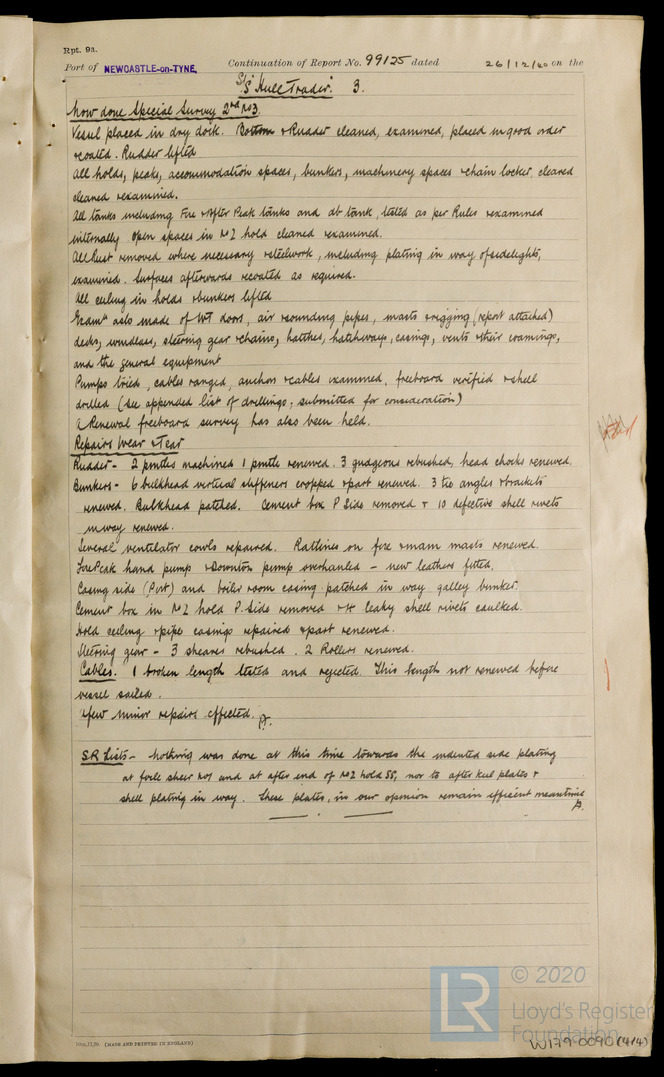 Rpt. 9a.
Port of NEWCASTLE-on-TYNE. Continuation of Report No. 99125 dated 26/12/40 on the
S/S "Hull Trader". 3.
Now done Special Survey 2nd No 3.
Vessel placed in dry dock. Bottom & Rudder cleaned, examined, placed in good order
& coated. Rudder lifted
All holds, peaks, accommodation spaces, bunkers, machinery spaces & chain locker, cleared
cleaned & examined.
All tanks including Fore & After Peak tanks and db tank, tested as per Rules & examined
internally open spaces in No 2 hold cleaned & examined.
All rust removed where necessary & steelwork, including plating in way of sidelights,
examined. Surfaces afterwards recoated as required.
All ceiling in holds & bunkers lifted
Examn also made of WT doors, air & sounding pipes, masts & rigging (report attached)
decks, windlass, steering gear & chains, hatches, hatchways, casings, vents & their coamings,
and the general equipment
Pumps tried, cables ranged, anchors & cables examined, freeboard verified & shell
drilled (see appended list of drillings, submitted for consideration)
A Renewal freeboard survey has also been held.
Repairs Wear & Tear
Rudder - 2 pintles machined 1 pintle renewed. 3 gudgeons rebushed, head chocks renewed.
Bunkers - 6 bulkhead vertical stiffeners cropped & part renewed. 3 tie angles & brackets
renewed. Bulkhead patched. Cement box P Side removed & 10 defective shell rivets
in way renewed.
Several ventilator cowls repaired. Ratlines on fore & main masts renewed.
Fore Peak hand pump & Downton pump overhauled - new leathers fitted.
Casing side (Port) and boiler room casing patched in way galley bunker.
Cement box in No 2 hold P. Side removed & 4 leaky shell rivets caulked.
Hold ceiling & pipe casings repaired & part renewed.
Steering gear - 3 sheaves rebushed. 2 Rollers renewed.
Cables. 1 broken length tested and rejected. This length not renewed before
vessel sailed.
& few minor repairs effected.
S.R Lists - Nothing was done at this time towards the indented side plating
at fore sheer No1 and at after end of No 2 hold SS, nor to after keel plates &
shell plating in way. These plates, in our opinion remain efficient meantime
10m,11,39. (MADE AND PRINTED IN ENGLAND)
LR
© 2020
Lloyd's Register
Foundation
W179-0090 (4/4)